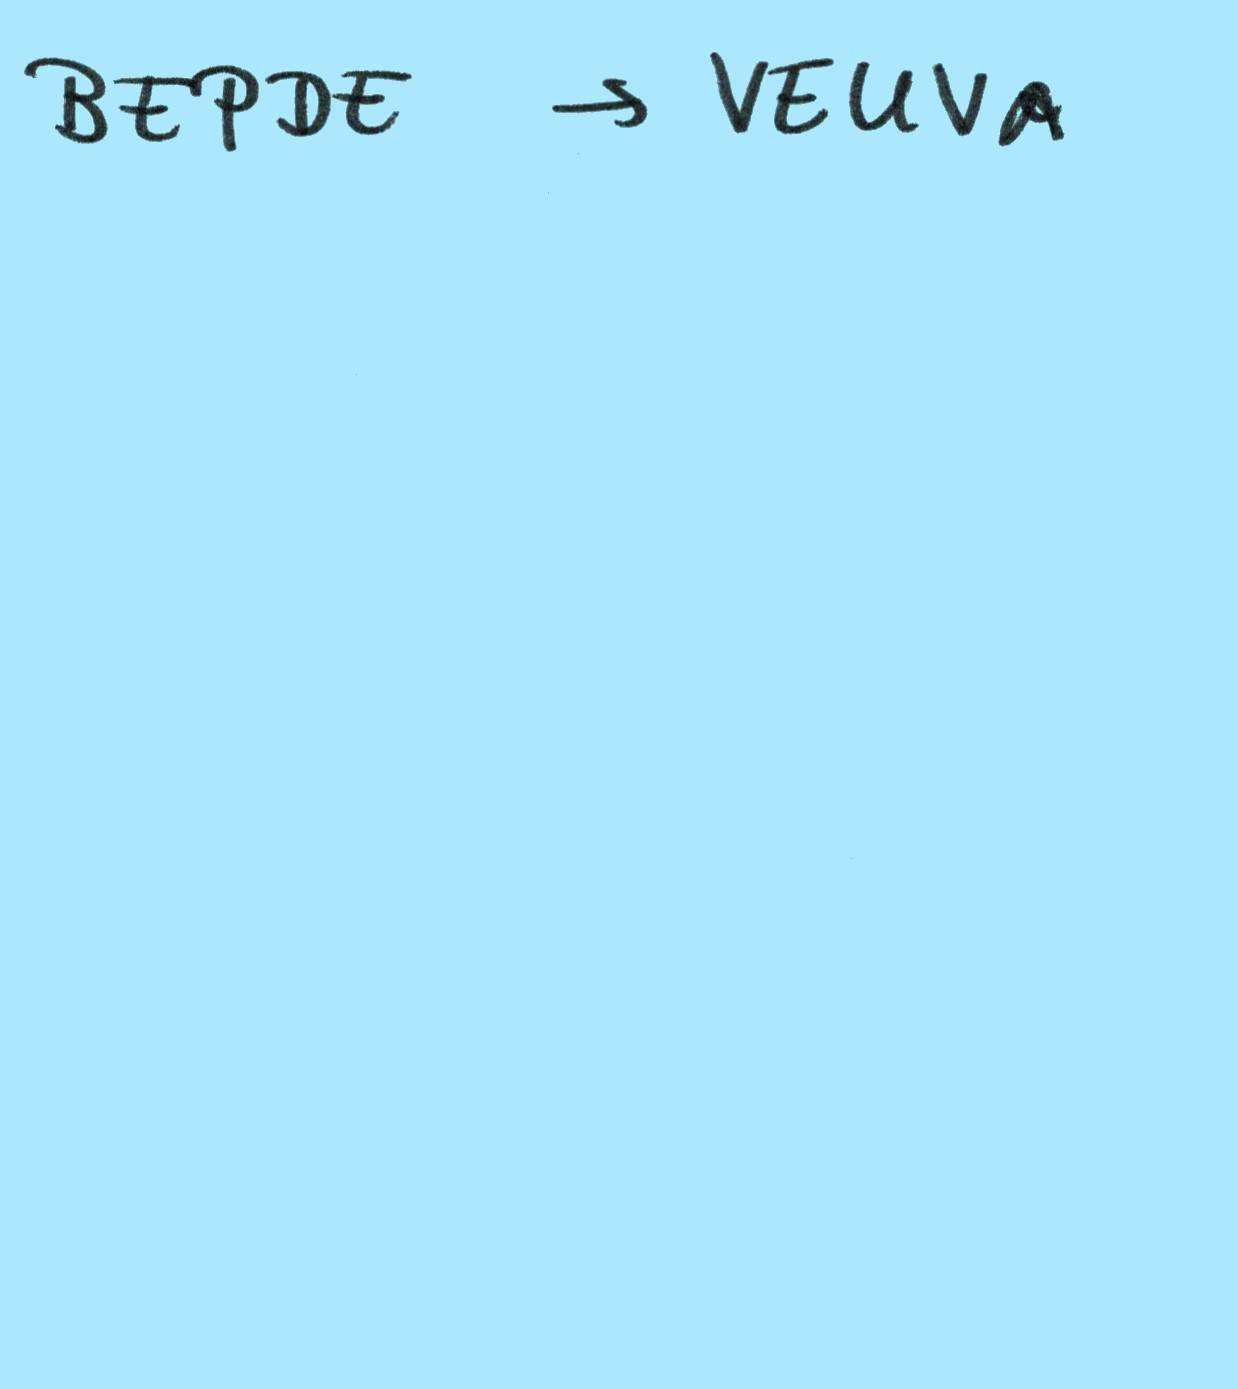 BEPDE → VEUVA